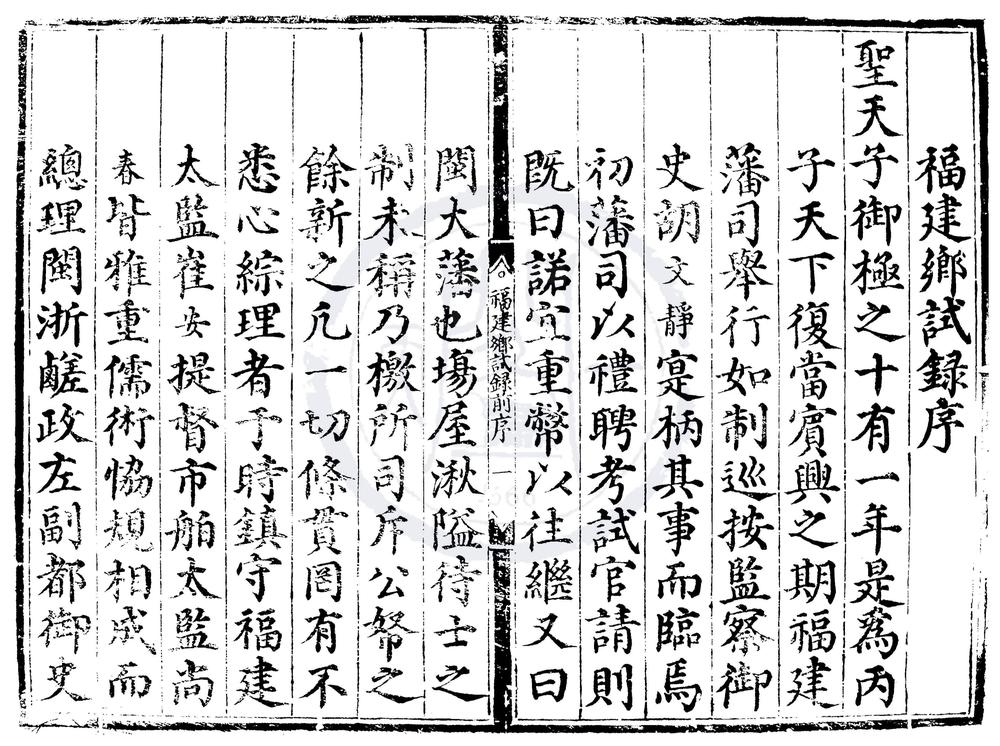 福建鄉試録序
聖天子御極之十有一年是爲丙
子天下復當賔興之期福建
藩司舉行如制巡按監察御
史胡文靜寔柄其事而臨焉
初藩司以禮聘考試官請則
既曰諾宜重幣以往繼又曰
福建鄉試録前序 一
閩大藩也塲屋湫隘待士之
制未稱乃檄所司斥公帑之
餘新之凢一切條貫罔有不
悉心綜理者于時鎮守福建
太監崔安提督市舶太監尚
春皆雅重儒術恊規相成而
總理閩浙鹺政左副都御史